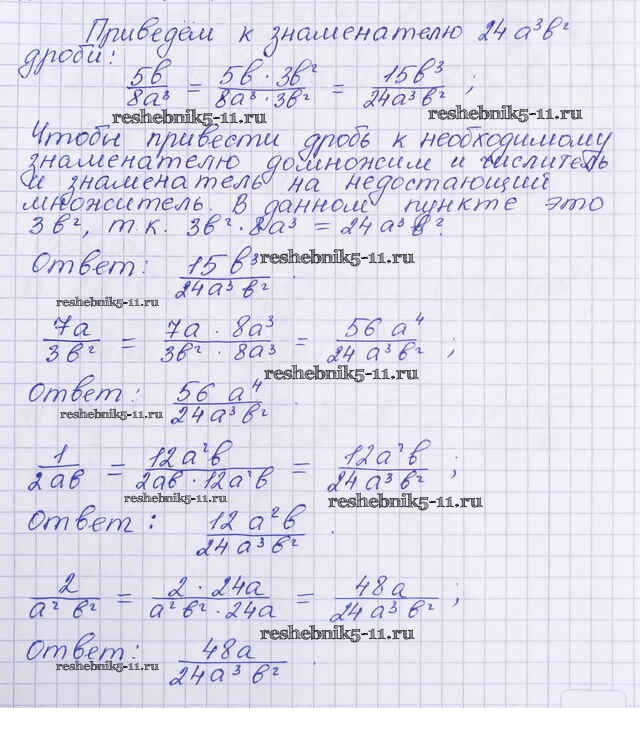 Приведём к знаменателю 24a³b²
дроби:
5b/8a³ = 5b · 3b²/8a³ · 3b² = 15b³/24a³b² ;
reshebnik5-11.ru reshebnik5-11.ru
Чтобы привести дробь к необходимому
знаменателю домножим и числитель
и знаменатель на недостающий
множитель. В данном пункте это
3b², т.к. 3b² · 8a³ = 24a³b².
Ответ: 15b³/24a³b² .
reshebnik5-11.ru
reshebnik5-11.ru
7a/3b² = 7a · 8a³/3b² · 8a³ = 56a⁴/24a³b² ;
reshebnik5-11.ru
Ответ: 56a⁴/24a³b² .
reshebnik5-11.ru
1/2ab = 12a²b/2ab · 12a²b = 12a²b/24a³b² ;
reshebnik5-11.ru reshebnik5-11.ru
Ответ: 12a²b/24a³b² .
2/a²b² = 2 · 24a/a²b² · 24a = 48a/24a³b² ;
reshebnik5-11.ru
Ответ: 48a/24a³b² .
reshebnik5-11.ru